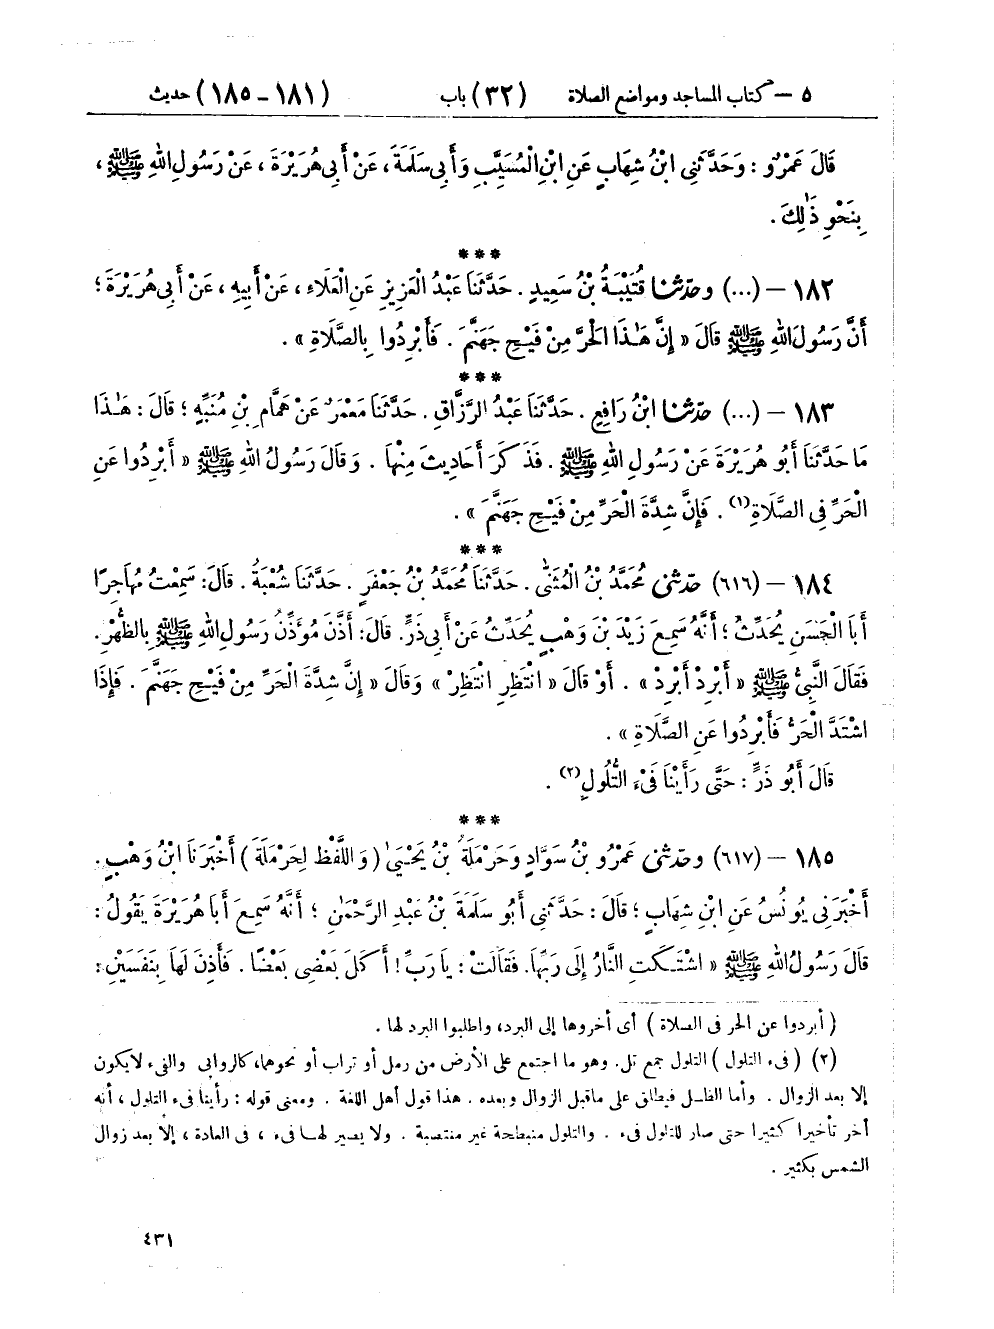 ٥ – كتاب المساجد ومواضع الصلاة (٣٢) باب (١٨١ – ١٨٥) حديث
قَالَ عَمْرٌو : وَحَدَّثَنِى ابْنُ شِهَابٍ عَنِ ابْنِ الْمُسَيَّبِ وَأَبِى سَلَمَةَ، عَنْ أَبِى هُرَيْرَةَ ، عَنْ رَسُولِ اللهِ ﷺ ،
بِنَحْوِ ذَٰلِكَ .
***
١٨٢ – (...) وحدّثنا قُتَيْبَةُ بْنُ سَعِيدٍ . حَدَّثَنَا عَبْدُ الْعَزِيزِ عَنِ الْعَلَاءِ ، عَنْ أَبِيهِ ، عَنْ أَبِى هُرَيْرَةَ ؛
أَنَّ رَسُولَ اللهِ ﷺ قَالَ « إِنَّ هَٰذَا الْحَرَّ مِنْ فَيْحِ جَهَنَّمَ . فَأَبْرِدُوا بِالصَّلَاةِ » .
***
١٨٣ – (...) حدّثنا ابْنُ رَافِعٍ . حَدَّثَنَا عَبْدُ الرَّزَّاقِ . حَدَّثَنَا مَعْمَرٌ عَنْ هَمَّامِ بْنِ مُنَبِّهٍ ؛ قَالَ : هَٰذَا
مَا حَدَّثَنَا أَبُو هُرَيْرَةَ عَنْ رَسُولِ اللهِ ﷺ . فَذَكَرَ أَحَادِيثَ مِنْهَا . وَقَالَ رَسُولُ اللهِ ﷺ « أَبْرِدُوا عَنِ
الْحَرِّ فِى الصَّلَاةِ(١) . فَإِنَّ شِدَّةَ الْحَرِّ مِنْ فَيْحِ جَهَنَّمَ » .
***
١٨٤ – (٦١٦) حدّثنى مُحَمَّدُ بْنُ الْمُثَنَّى . حَدَّثَنَا مُحَمَّدُ بْنُ جَعْفَرٍ . حَدَّثَنَا شُعْبَةُ . قَالَ: سَمِعْتُ مُهَاجِرًا
أَبَا الْحَسَنِ يُحَدِّثُ ؛ أَنَّهُ سَمِعَ زَيْدَ بْنَ وَهْبٍ يُحَدِّثُ عَنْ أَبِى ذَرٍّ. قَالَ: أَذَّنَ مُؤَذِّنُ رَسُولِ اللهِ ﷺ بِالظُّهْرِ.
فَقَالَ النَّبِىُّ ﷺ « أَبْرِدْ أَبْرِدْ » . أَوْ قَالَ « انْتَظِرِ انْتَظِرْ » وَقَالَ « إِنَّ شِدَّةَ الْحَرِّ مِنْ فَيْحِ جَهَنَّمَ . فَإِذَا
اشْتَدَّ الْحَرُّ فَأَبْرِدُوا عَنِ الصَّلَاةِ » .
قَالَ أَبُو ذَرٍّ : حَتَّى رَأَيْنَا فَىْءَ التُّلُولِ(٢) .
***
١٨٥ – (٦١٧) وحدّثنى عَمْرُو بْنُ سَوَّادٍ وَحَرْمَلَةُ بْنُ يَحْيَىٰ ( وَاللَّفْظُ لِحَرْمَلَةَ ) أَخْبَرَنَا ابْنُ وَهْبٍ .
أَخْبَرَنِى يُونُسُ عَنِ ابْنِ شِهَابٍ ؛ قَالَ : حَدَّثَنِى أَبُو سَلَمَةَ بْنُ عَبْدِ الرَّحْمَٰنِ ؛ أَنَّهُ سَمِعَ أَبَا هُرَيْرَةَ يَقُولُ :
قَالَ رَسُولُ اللهِ ﷺ « اشْتَكَتِ النَّارُ إِلَى رَبِّهَا. فَقَالَتْ : يَا رَبِّ ! أَكَلَ بَعْضِى بَعْضًا . فَأَذِنَ لَهَا بِنَفَسَيْنِ :
( أبردوا عن الحر فى الصلاة ) أى أخروها إلى البرد، واطلبوا البرد لها .
(٢) ( فىء التلول ) التلول جمع تل. وهو ما اجتمع على الأرض من رمل أو تراب أو نحوهما، كالروابى والفىء لا يكون
إلا بعد الزوال . وأما الظل فيطلق على ما قبل الزوال وبعده . هذا قول أهل اللغة . ومعنى قوله : رأينا فىء التلول ، أنه
أخر تأخيرا كثيرا حتى صار للتلول فىء . والتلول منبطحة غير منتصبة . ولا يصير لها فىء ، فى العادة ، إلا بعد زوال
الشمس بكثير .
٤٣١